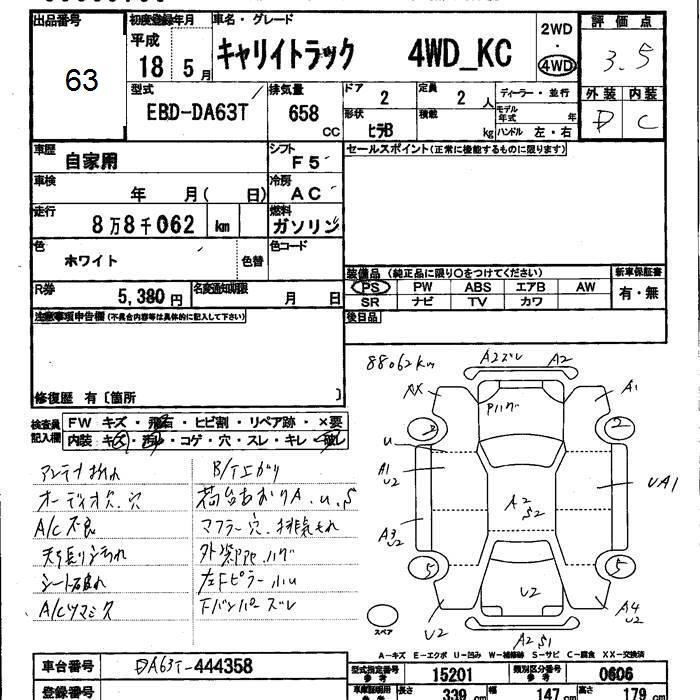 出品番号
63
初度登録年月
平成
18 5月
車名・グレード
キャリイトラック 4WD_KC
2WD
・
4WD
評価点
3.5
外装 内装
D C
型式
EBD-DA63T
排気量
658
CC
ドア
2
定員
2 人
形状
ヒラB
積載
kg
ディーラー・並行
モデル年式 年
ハンドル 左・右
車歴
自家用
シフト
F5
車検
年 月( 日)
冷房
AC
走行
8万8千062 km
燃料
ガソリン
色
ホワイト
色替
色コード
R券
5,380円
名変通知期限
月 日
セールスポイント(正常に機能するものに限ります)
装備品(純正品に限り○をつけてください)
PS PW ABS エアB AW
SR ナビ TV カワ
新車保証書
有・無
後日品
注意事項申告欄(不具合内容等は具体的に記入して下さい)
修復歴 有〔箇所 〕
検査員記入欄
FW キズ・飛石・ヒビ割・リペア跡・×要
内装 キズ・汚れ・コゲ・穴・スレ・キレ・破レ
アンテナおれ
オーディオ欠.穴
A/C不良
天張り汚れ
シート破れ
B/T上がり
荷台あおりA.u.S
マフラー穴.排気もれ
左Fピラー小u
Fバンパーズレ
88062km
A2ズレ A2
XX
A1
Pハゲ
2
2
u
A1
U2
UA1
A2
S2
A3
U2
5
5
U2
U2
A4
U2
A2 S1
スペア
A-キズ E-エクボ U-凹み W-補修跡 S-サビ C-腐食 XX-交換済
車台番号
DA63T-444358
登録番号
型式指定番号 参考
15201
類別区分番号 参考
0606
車庫証明用 参考
長さ 339 cm
幅 147 cm
高さ 179 cm